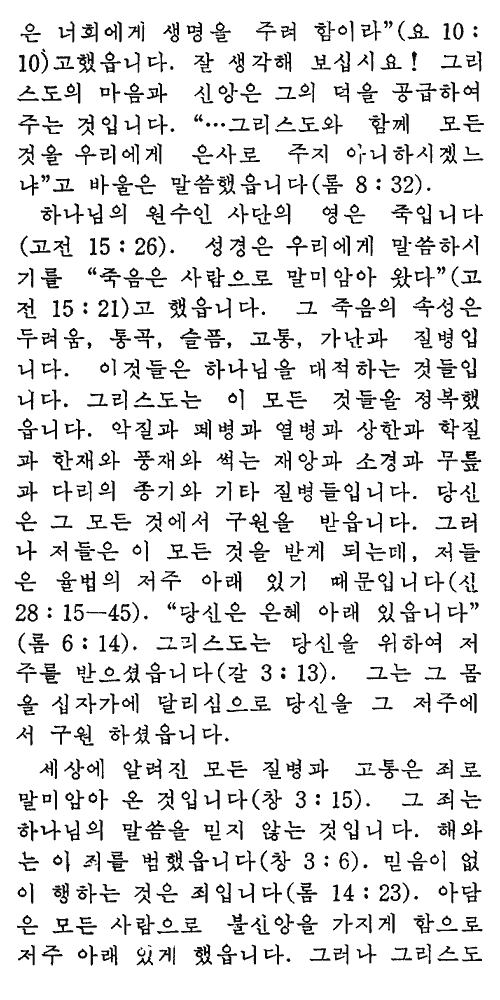 은 너희에게 생명을 주려 함이라”(요 10 :
10)고했읍니다. 잘 생각해 보십시요! 그리
스도의 마음과 신앙은 그의 덕을 공급하여
주는 것입니다. “…그리스도와 함께 모든
것을 우리에게 은사로 주지 아니하시겠느
냐”고 바울은 말씀했읍니다(롬 8 : 32).
하나님의 원수인 사단의 영은 죽입니다
(고전 15 : 26). 성경은 우리에게 말씀하시
기를 “죽음은 사람으로 말미암아 왔다”(고
전 15 : 21)고 했읍니다. 그 죽음의 속성은
두려움, 통곡, 슬픔, 고통, 가난과 질병입
니다. 이것들은 하나님을 대적하는 것들입
니다. 그리스도는 이 모든 것들을 정복했
읍니다. 악질과 폐병과 열병과 상한과 학질
과 한재와 풍재와 썩는 재앙과 소경과 무릎
과 다리의 종기와 기타 질병들입니다. 당신
은 그 모든 것에서 구원을 받읍니다. 그러
나 저들은 이 모든 것을 받게 되는데, 저들
은 율법의 저주 아래 있기 때문입니다(신
28 : 15—45). “당신은 은혜 아래 있읍니다”
(롬 6 : 14). 그리스도는 당신을 위하여 저
주를 받으셨읍니다(갈 3 : 13). 그는 그 몸
을 십자가에 달리심으로 당신을 그 저주에
서 구원 하셨읍니다.
세상에 알려진 모든 질병과 고통은 죄로
말미암아 온 것입니다(창 3 : 15). 그 죄는
하나님의 말씀을 믿지 않는 것입니다. 해와
는 이 죄를 범했읍니다(창 3 : 6). 믿음이 없
이 행하는 것은 죄입니다(롬 14 : 23). 아담
은 모든 사람으로 불신앙을 가지게 함으로
저주 아래 있게 했읍니다. 그러나 그리스도